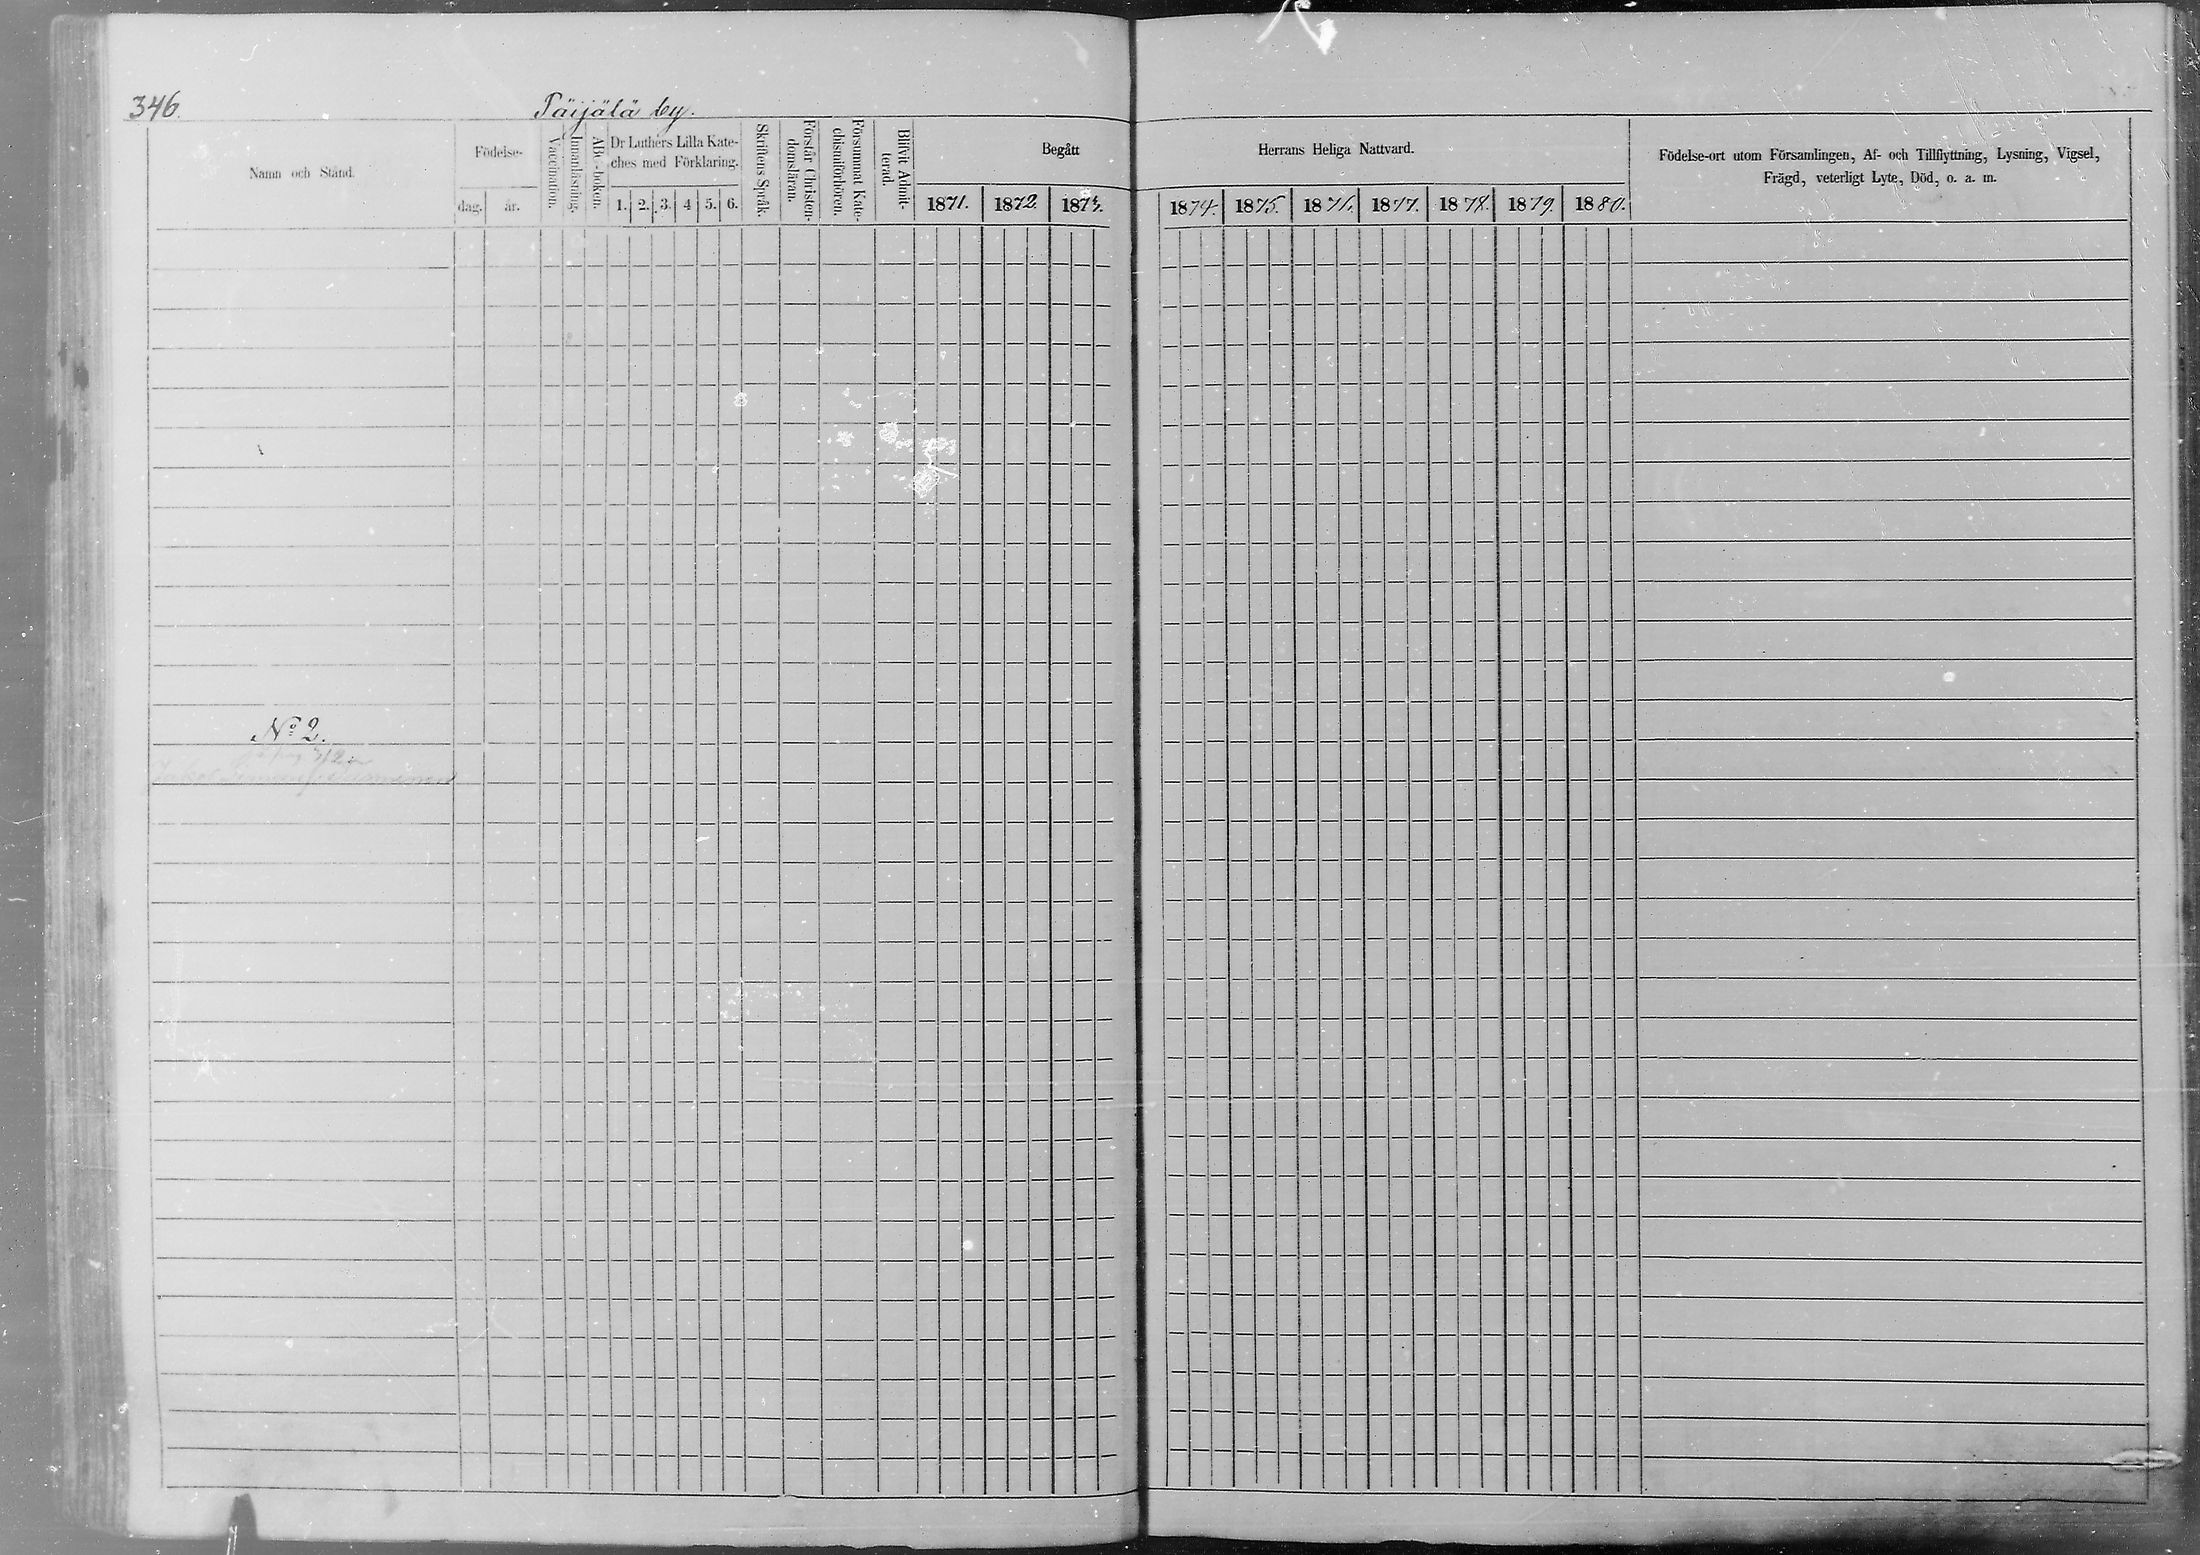 346.
Päijälä by.
Namn och Stånd.
Födelse-
dag.
år.
Vaccination.
Innanläsning.
ABC-boken.
Dr Luthers Lilla Kate-
ches med Förklaring.
1. 2. 3. 4 5. 6.
Skriftens Språk.
Förstår Christen-
domsläran.
Försummat Kate-
chismiförhören.
Blifvit Admit-
terad.
Begått
Herrans Heliga Nattvard.
1871. 1872. 1873.
1874. 1875. 1876. 1877. 1878. 1879. 1880.
Födelse-ort utom Församlingen, Af- och Tillflyttning, Lysning, Vigsel,
Frägd, veterligt Lyte, Död, o. a. m.
No 2.